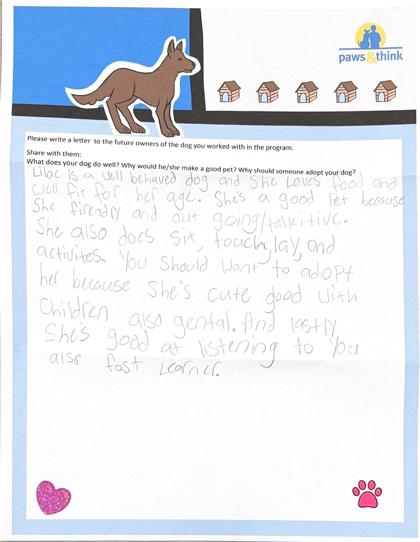 paws&think
Please write a letter to the future owners of the dog you worked with in the program.
Share with them:
What does your dog do well? Why would he/she make a good pet? Why should someone adopt your dog?
Lilac is a well behaved dog and She Loves food and
well fit for her age. She's a good Pet because
She firendry and out going/talkitive.
She also does sit, touch, lay, and
activites. You Should Want to adopt
her because She's cute good with
Children also gental. And lastly
She's good at listening to You
also fast Learner.